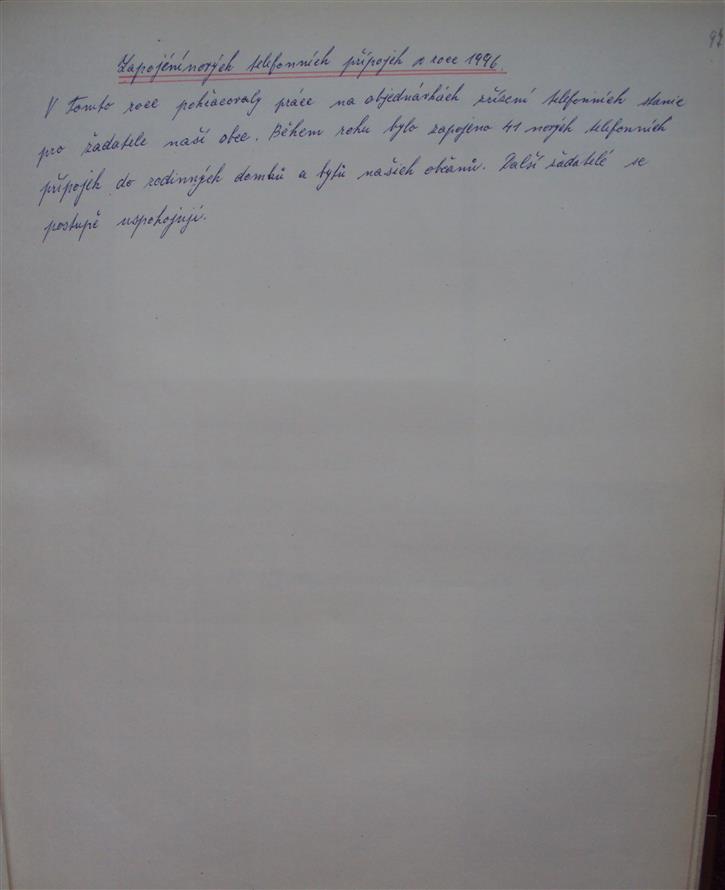 97
Zapojení nových telefonních přípojek v roce 1996.
V Tomto roce pokračovaly práce na objednávkách zřízení telefonních stanic
pro žadatele naší obce. Během roku bylo zapojeno 41 nových telefonních
přípojek do rodinných domků a bytů našich občanů. Další žadatelé se
postupě uspokojují.